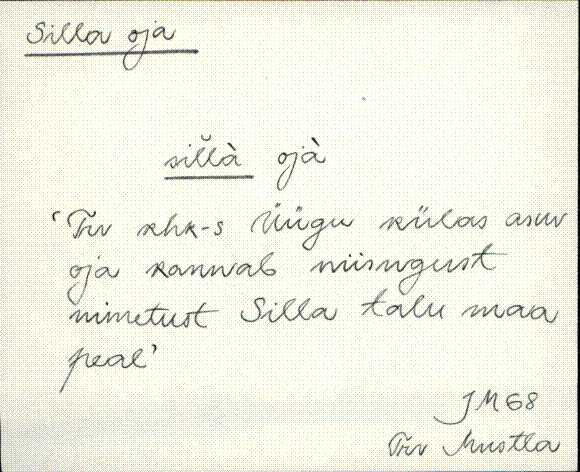 Silla oja
sil̆là ojà
'Trv khk-s Üügu külas asuv
oja kannab niisugust
nimetust Silla talu maa
peal'
JM 68
Trv Mustla